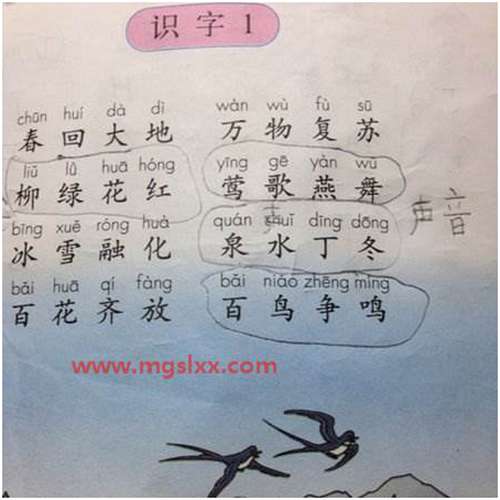 识字1
chūn huí dà dì wàn wù fù sū
春回大地 万物复苏
liǔ lǜ huā hóng yīng gē yàn wǔ
柳绿花红 莺歌燕舞
bīng xuě róng huà quán shuǐ dīng dōng
冰雪融化 泉水丁冬
bǎi huā qí fàng bǎi niǎo zhēng míng
百花齐放 百鸟争鸣
声音
www.mgslxx.com